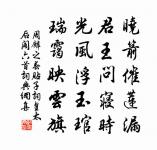 曉箭催蓮漏
君王問寢時
光風浮玉琯
瑞靄映雲旗
周麟之春帖子詞皇太
后閣六首詞典網喜